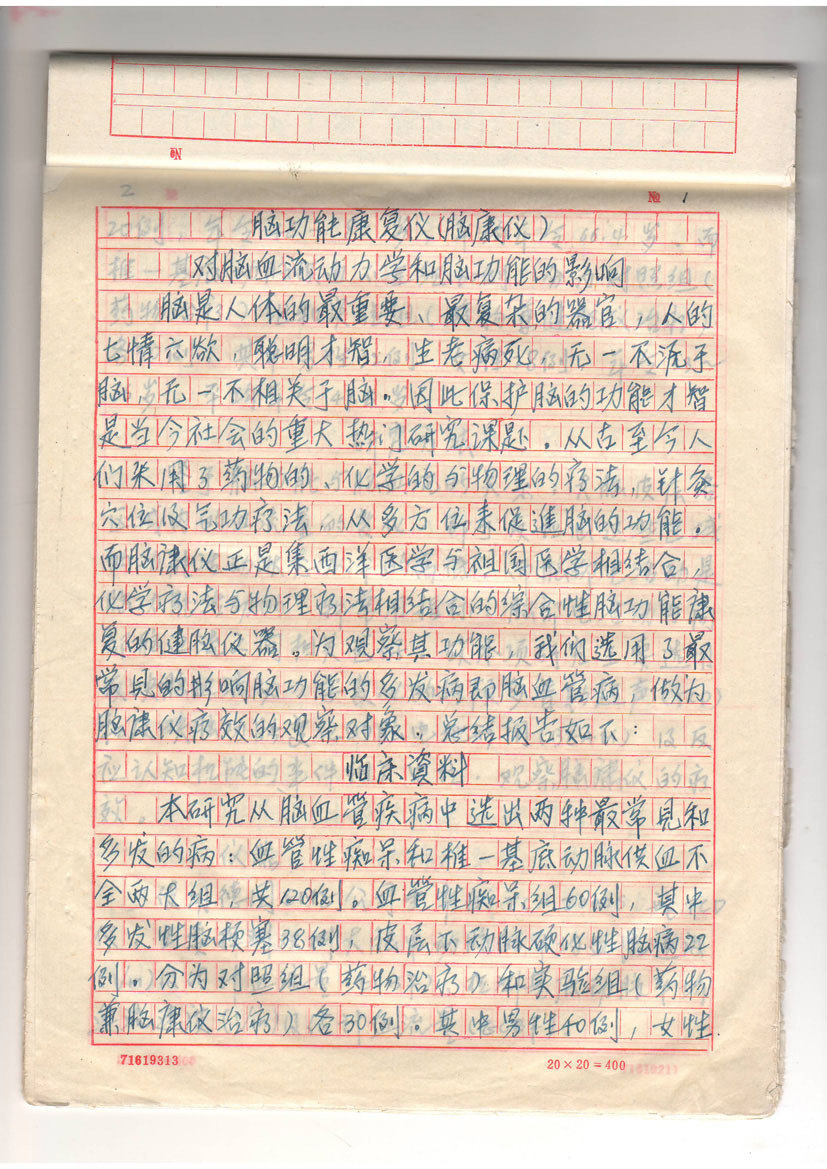 №
2
№ 1
脑功能康复仪(脑康仪)
对脑血流动力学和脑功能的影响
脑是人体的最重要、最复杂的器官,人的
七情六欲,聪明才智,生老病死,无一不流于
脑,无一不相关于脑。因此保护脑的功能才智
是当今社会的重大热门研究课题。从古至今人
们采用了药物的、化学的与物理的疗法,针灸
穴位及气功疗法,从多方位来促進脑的功能。
而脑康仪正是集西洋医学与祖国医学相结合,
化学疗法与物理疗法相结合的综合性脑功能康
复的健脑仪器。为观察其功能,我们选用了最
常見的影响脑功能的多发病即脑血管病,做为
脑康仪疗效的观察对象。总结报告如下:
临床資料
本研究从脑血管疾病中选出两种最常見和
多发的病:血管性痴呆和椎一基底动脉供血不
全两大组,共120例。血管性痴呆组60例,其中
多发性脑梗塞38例,皮层下动脉硬化性脑病22
例。分为对照组(药物治疗)和实验组(药物
兼脑康仪治疗)各30例。其中男性40例,女性
71619313
20×20=400